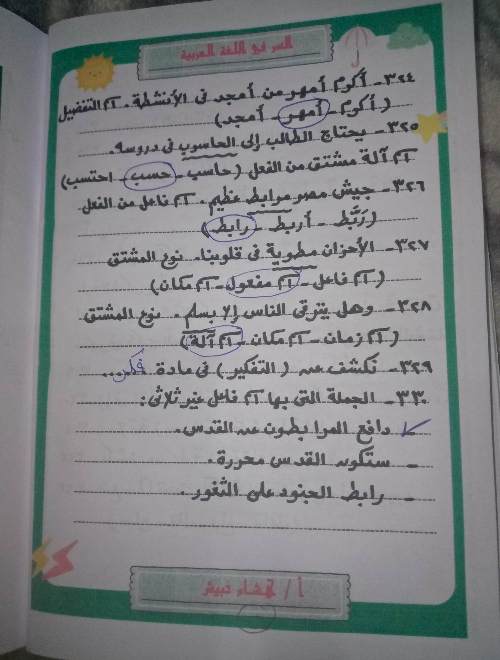 السر في اللغة العربية
٣٢٤- أكرم أمهر من أمجد فى الأنشطة. اسم التفضيل
(أكرم - أمهر - أمجد)
٣٢٥- يحتاج الطالب إلى الحاسوب فى دروسه.
اسم آلة مشتق من الفعل (حاسب - حسب - احتسب)
٣٢٦- جيش مصر مرابط عظيم. اسم فاعل من الفعل
(ربَّط - أربط - رابط)
٣٢٧- الأحزان مطوية فى قلوبنا. نوع المشتق
(اسم فاعل - اسم مفعول - اسم مكان)
٣٢٨- وهل يترقى الناس إلا بسلم. نوع المشتق
(اسم زمان - اسم مكان - اسم آلة)
٣٢٩- تكشف عن (التفكير) فى مادة فكر..
٣٣٠- الجملة التى بها اسم فاعل غير ثلاثى:
- دافع المرابطون عن القدس.
- ستكون القدس محررة.
- رابط الجنود على الثغور.
أ /